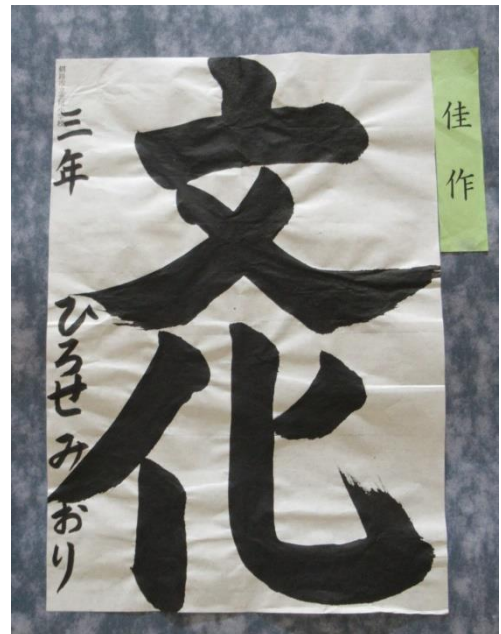 佳作
文化
三年
ひろせみおり